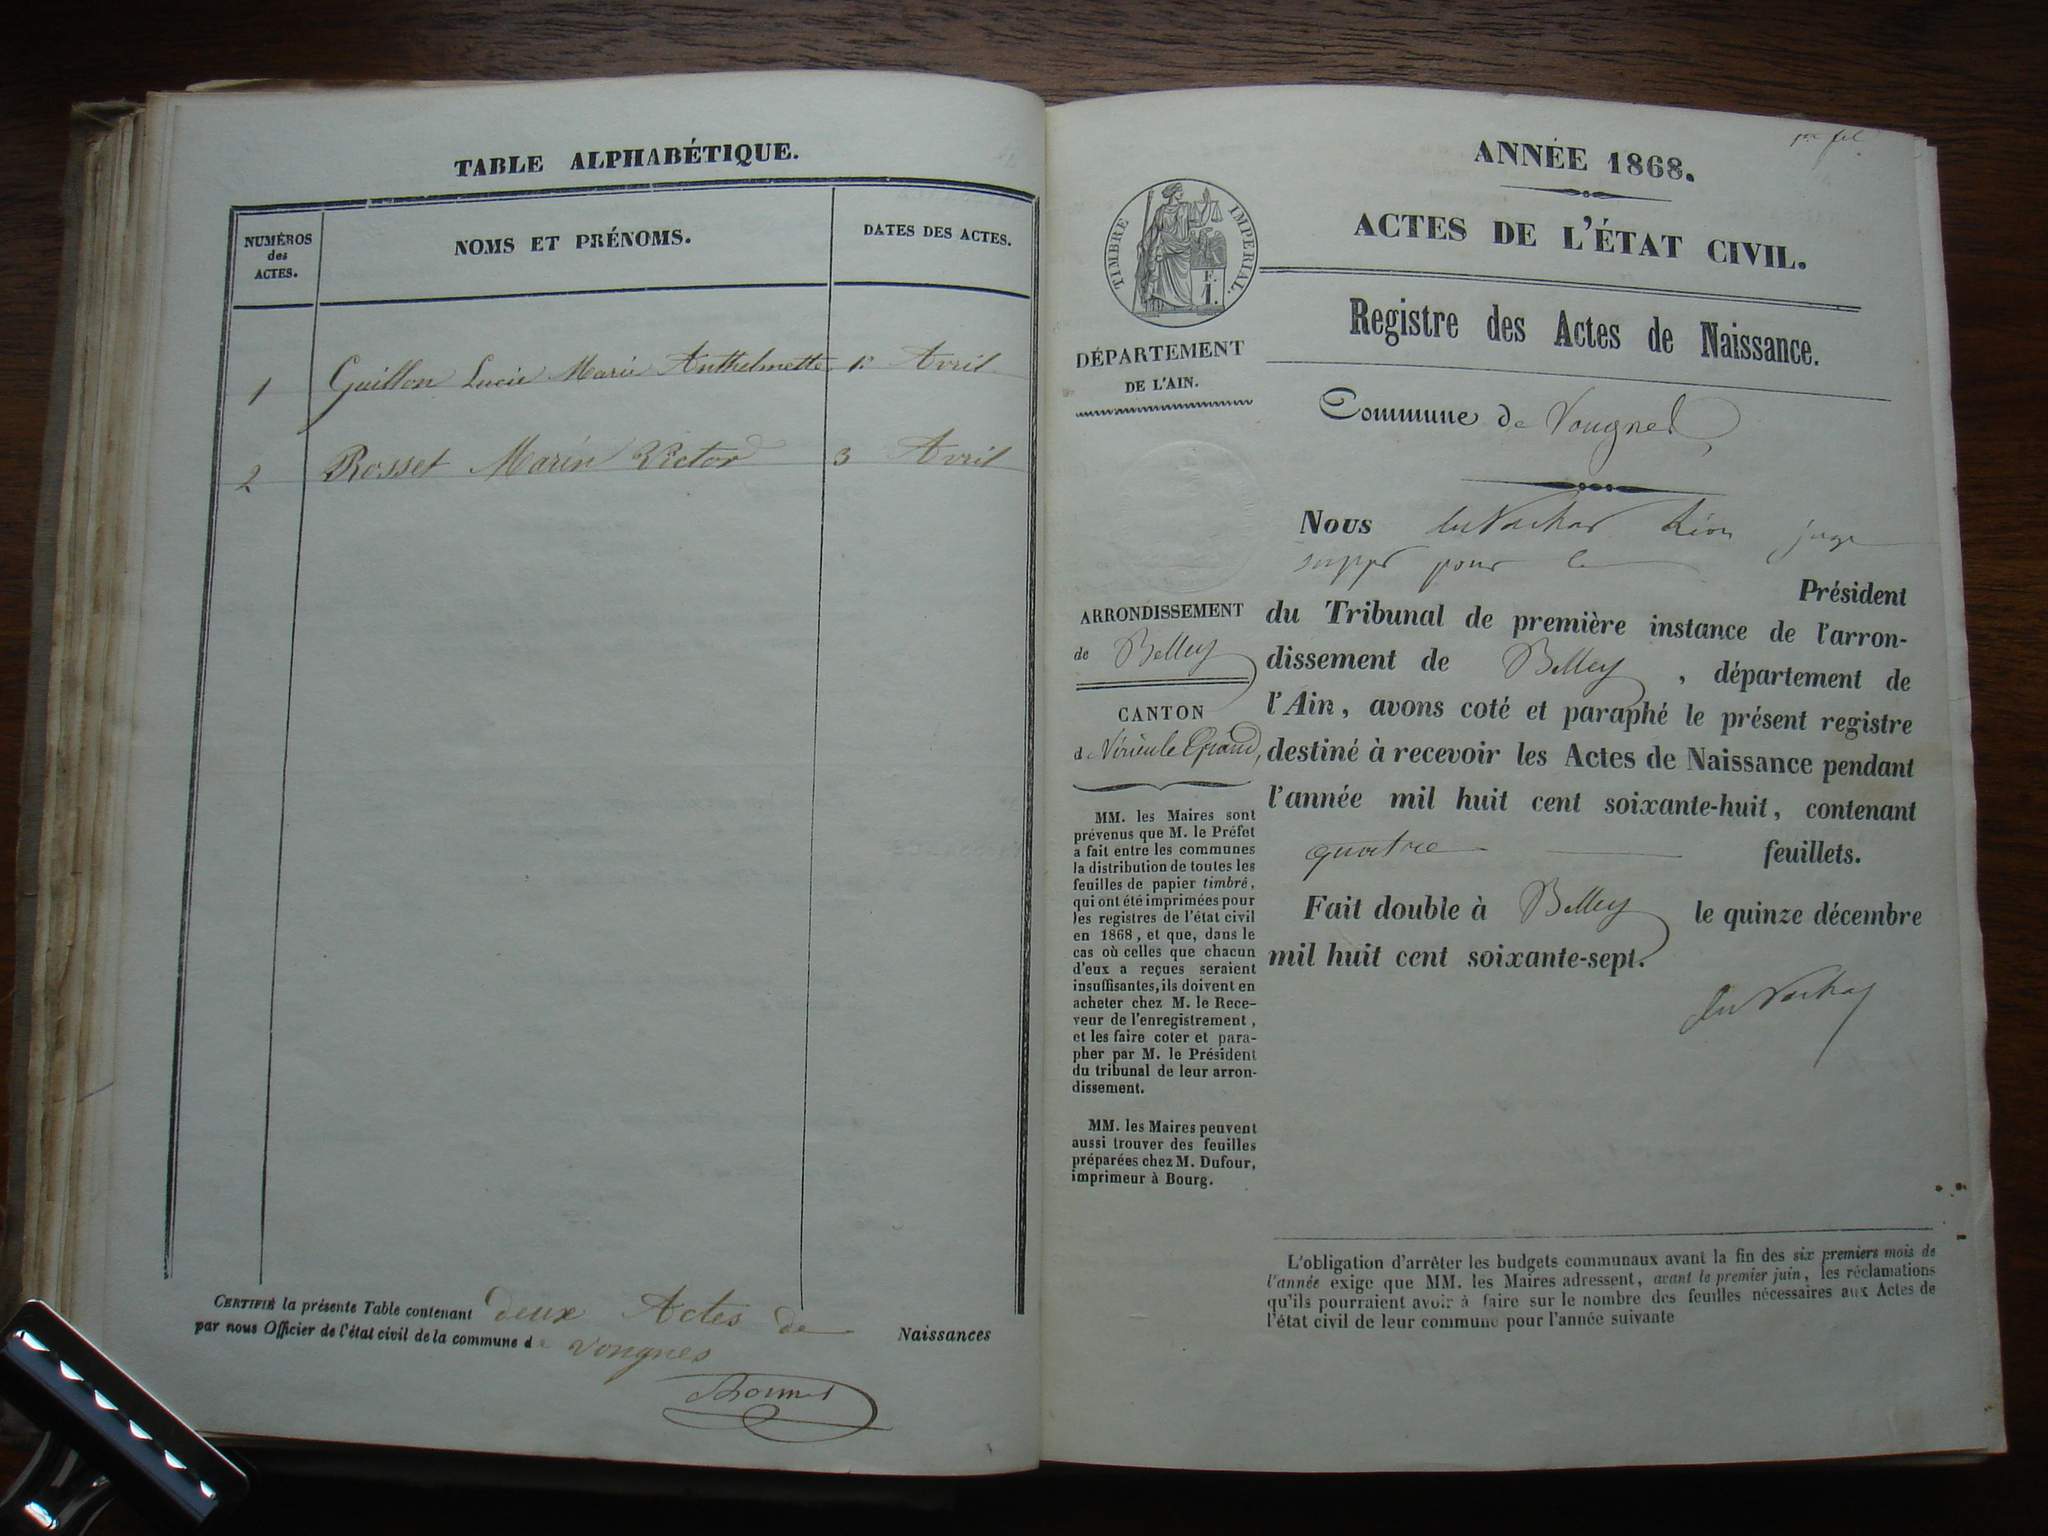 TABLE ALPHABÉTIQUE.
NUMÉROS
des
ACTES.
NOMS ET PRÉNOMS.
DATES DES ACTES.
1 Guillon Lucie Marie Anthelmette 1er Avril
2 Rosset Marin Victor 3 Avril
CERTIFIÉ la présente Table contenant deux Actes de Naissances
par nous Officier de l'état civil de la commune de Vongnes
Bonnet
1er feuil
ANNÉE 1868.
ACTES DE L'ÉTAT CIVIL.
TIMBRE IMPÉRIAL.
F.
1.
Registre des Actes de Naissance.
DÉPARTEMENT
DE L'AIN.
Commune de Vongnes
ARRONDISSEMENT
de Belley
CANTON
de Virieu le Grand,
MM. les Maires sont
prévenus que M. le Préfet
a fait entre les communes
la distribution de toutes les
feuilles de papier timbré,
qui ont été imprimées pour
les registres de l'état civil
en 1868, et que, dans le
cas où celles que chacun
d'eux a reçues seraient
insuffisantes, ils doivent en
acheter chez M. le Rece-
veur de l'enregistrement,
et les faire coter et para-
pher par M. le Président
du tribunal de leur arron-
dissement.
MM. les Maires peuvent
aussi trouver des feuilles
préparées chez M. Dufour,
imprimeur à Bourg.
Nous Léon juge
suppt pour le
Président
du Tribunal de première instance de l'arron-
dissement de Belley, département de
l'Ain, avons coté et paraphé le présent registre
destiné à recevoir les Actes de Naissance pendant
l'année mil huit cent soixante-huit, contenant
quatre feuillets.
Fait double à Belley le quinze décembre
mil huit cent soixante-sept.
L'obligation d'arrêter les budgets communaux avant la fin des six premiers mois de
l'année exige que MM. les Maires adressent, avant le premier juin, les réclamations
qu'ils pourraient avoir à faire sur le nombre des feuilles nécessaires aux Actes de
l'état civil de leur commune pour l'année suivante